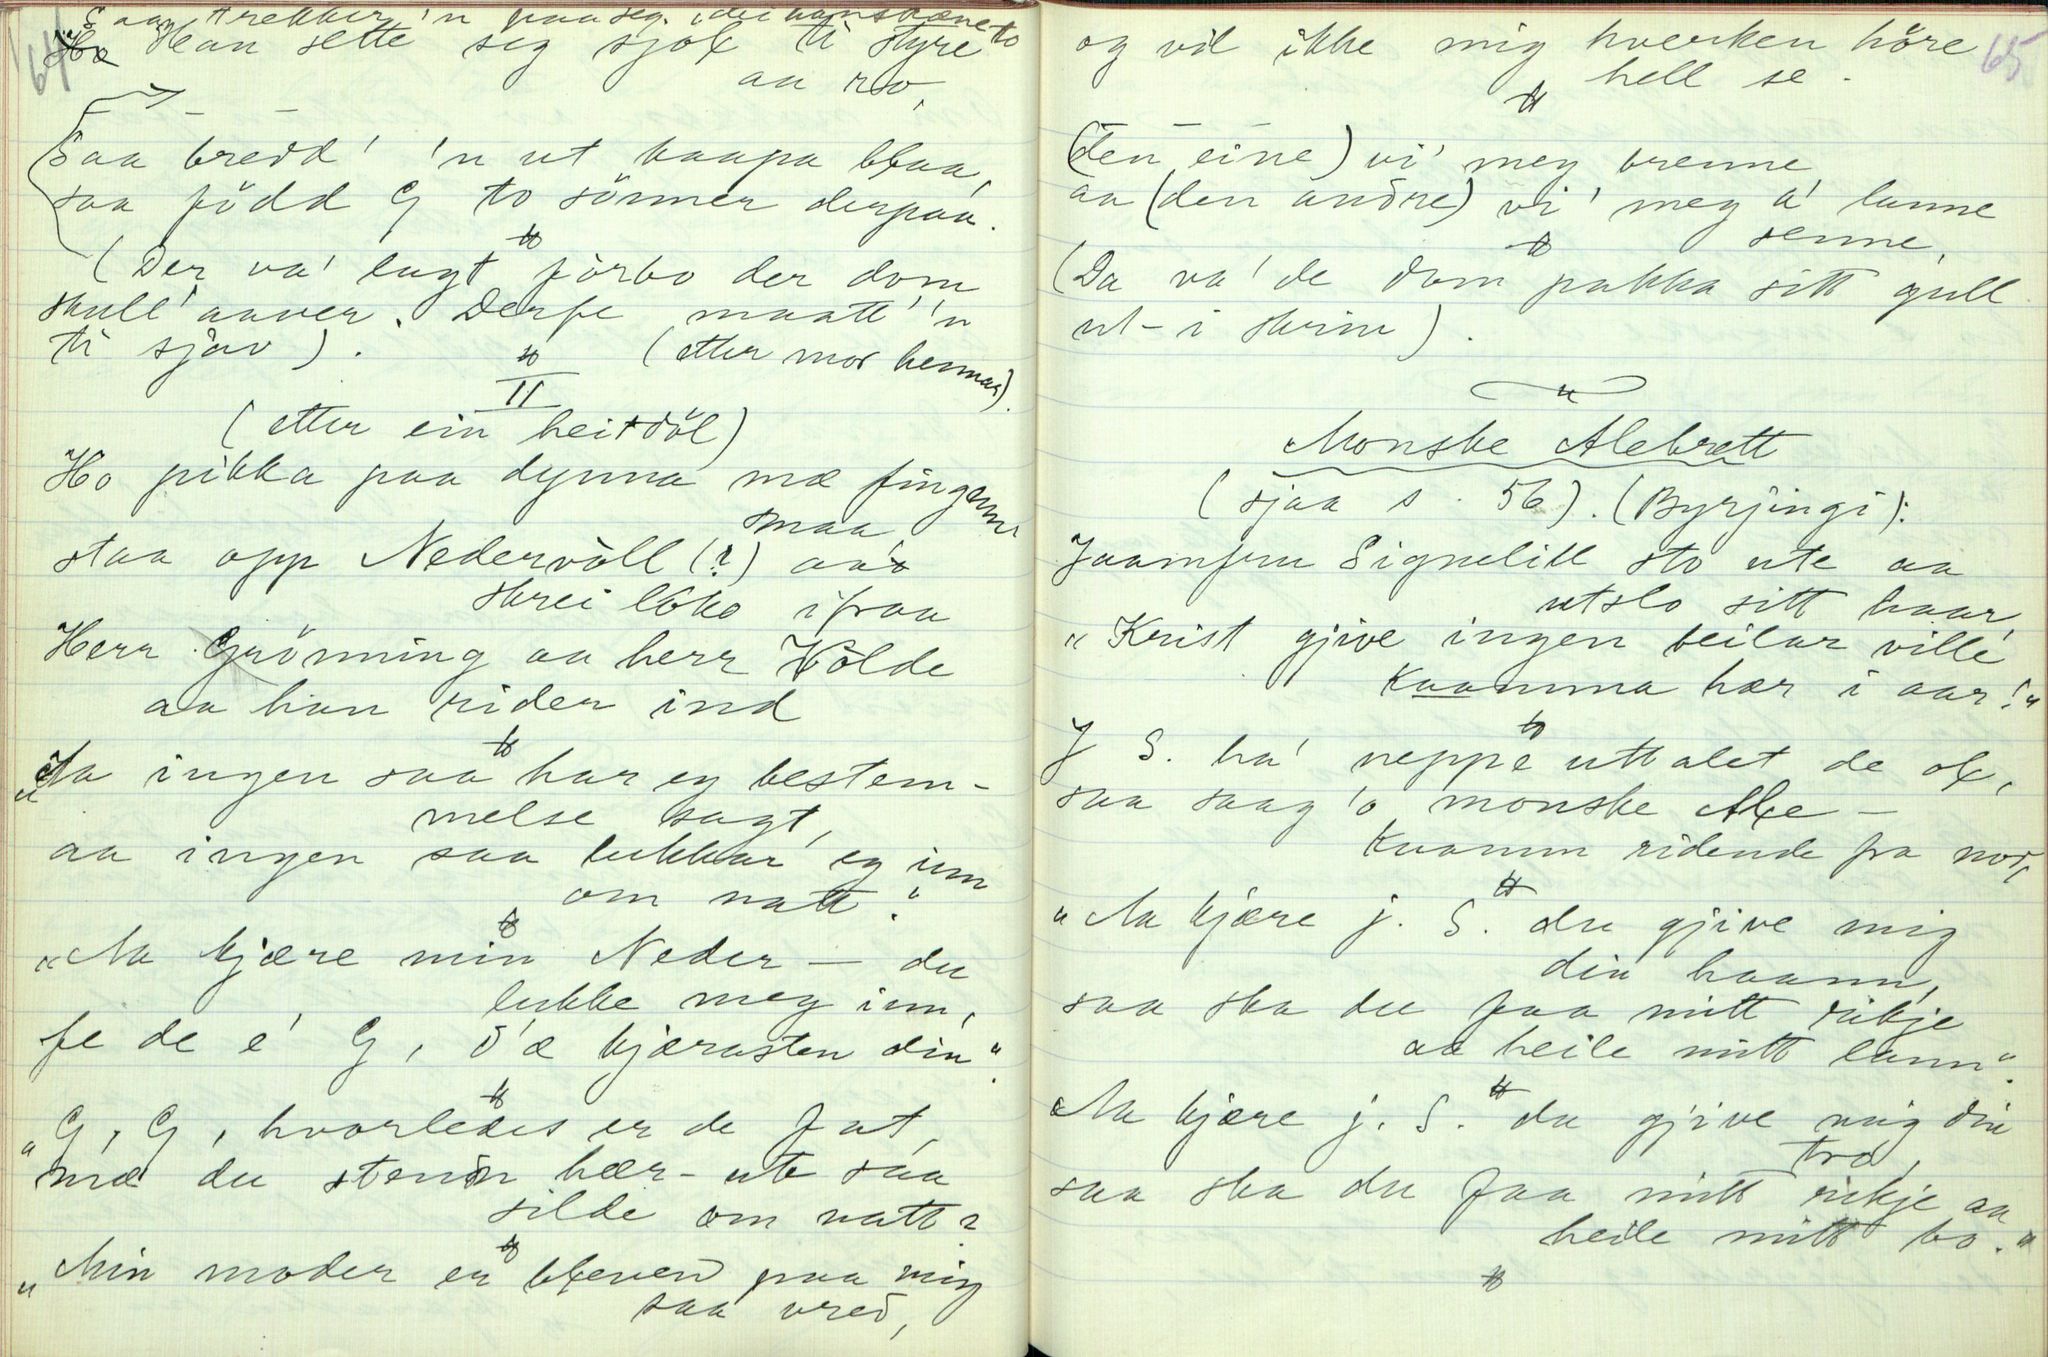 64
S aa trekker 'n paa seg
Han sette seg sjøl ti styre
aa ro,
Saa bredd' 'n ut kaapa blaa,
saa född G to sönner derpaa.
(Der va' lagt förbo der dom
skull' aaver. Derfe maatt' 'n
ti sjøv). (etter mor hennar).
II
(etter ein heitdöl)
Ho pikka paa dynna mæ fingrann
smaa
staa opp Nedervöll (?) aa
skrei loko ifraa
Herr Grönning aa herr Völde
aa han rider ind
"Ja ingen saa har eg bestem-
melse sagt,
aa ingen saa lukkar eg inn
om natt."
"Aa kjære min Neder — du
lukke meg inn,
fe de e' G, d'æ kjærasten din".
"G, G, hvorledes er de fat,
mæ du stenn hær-ute saa
silde om natt?
"Min moder er bleven paa mig
saa vred,
65
og vil ikke mig hverken höre
hell se.
(den eine) vi' meg brenne
aa (den andre) vi' meg a' lanne
senne,
(Da va' de dom pakka sitt gull
ut-i skrin).
Monske Alebrett
(sjaa s. 56). (Byrjingi):
Jaamfru Signelill sto ute aa
utslo sitt haar,
"Krist gjive ingen beilar ville
kaamma hær i aar!"
J S. ha' neppe uttalet de ol,
saa saag 'o monske Ale —
kaamm ridende fra nor,
"Aa kjære j. S. du gjive mig
din haann,
saa ska du faa mitt rikje
aa heile mitt lann".
Aa kjære j. S. du gjive mig din
tro,
saa ska du faa mitt rikje aa
heile mitt bo."